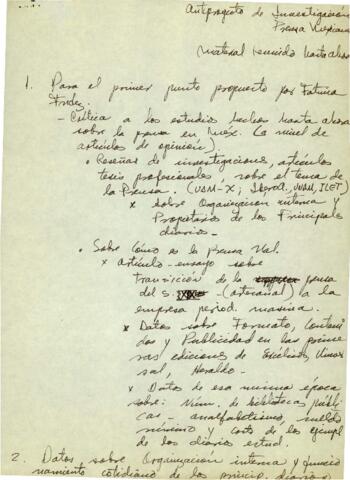 Anteproyecto de Investigación
Prensa Mexicana
Material reunido hasta ahora
1. Para el primer punto propuesto por Fátima
Fndez.
- Crítica a los estudios hechos hasta ahora
sobre la prensa en Méx. (a nivel de
artículos de opinión).
• Reseñas de investigaciones, artículos
tesis profesionales, sobre el tema de
la Prensa. (UAM-X; Iberoa., UNAM, ILET)
x sobre Organización interna y
Propietarios de los Principales
diarios -
• Sobre Cómo es la Prensa Nal.
x artículo - ensayo sobre
transición de la prensa
del s. XIX - (artesanal) a la
empresa period. masiva.
x Datos sobre Formato, Conteni
dos y Publicidad en las prime
ras ediciones de Excélsior, Univer
sal, Heraldo -
x Datos de esa misma época
sobre: Núm. de bibliotecas públi
cas - analfabetismo, sueldo
mínimo y costo de los ejempl
de los diarios estud.
2. Datos sobre Organización interna y funcio
namiento cotidiano de los princip. diarios